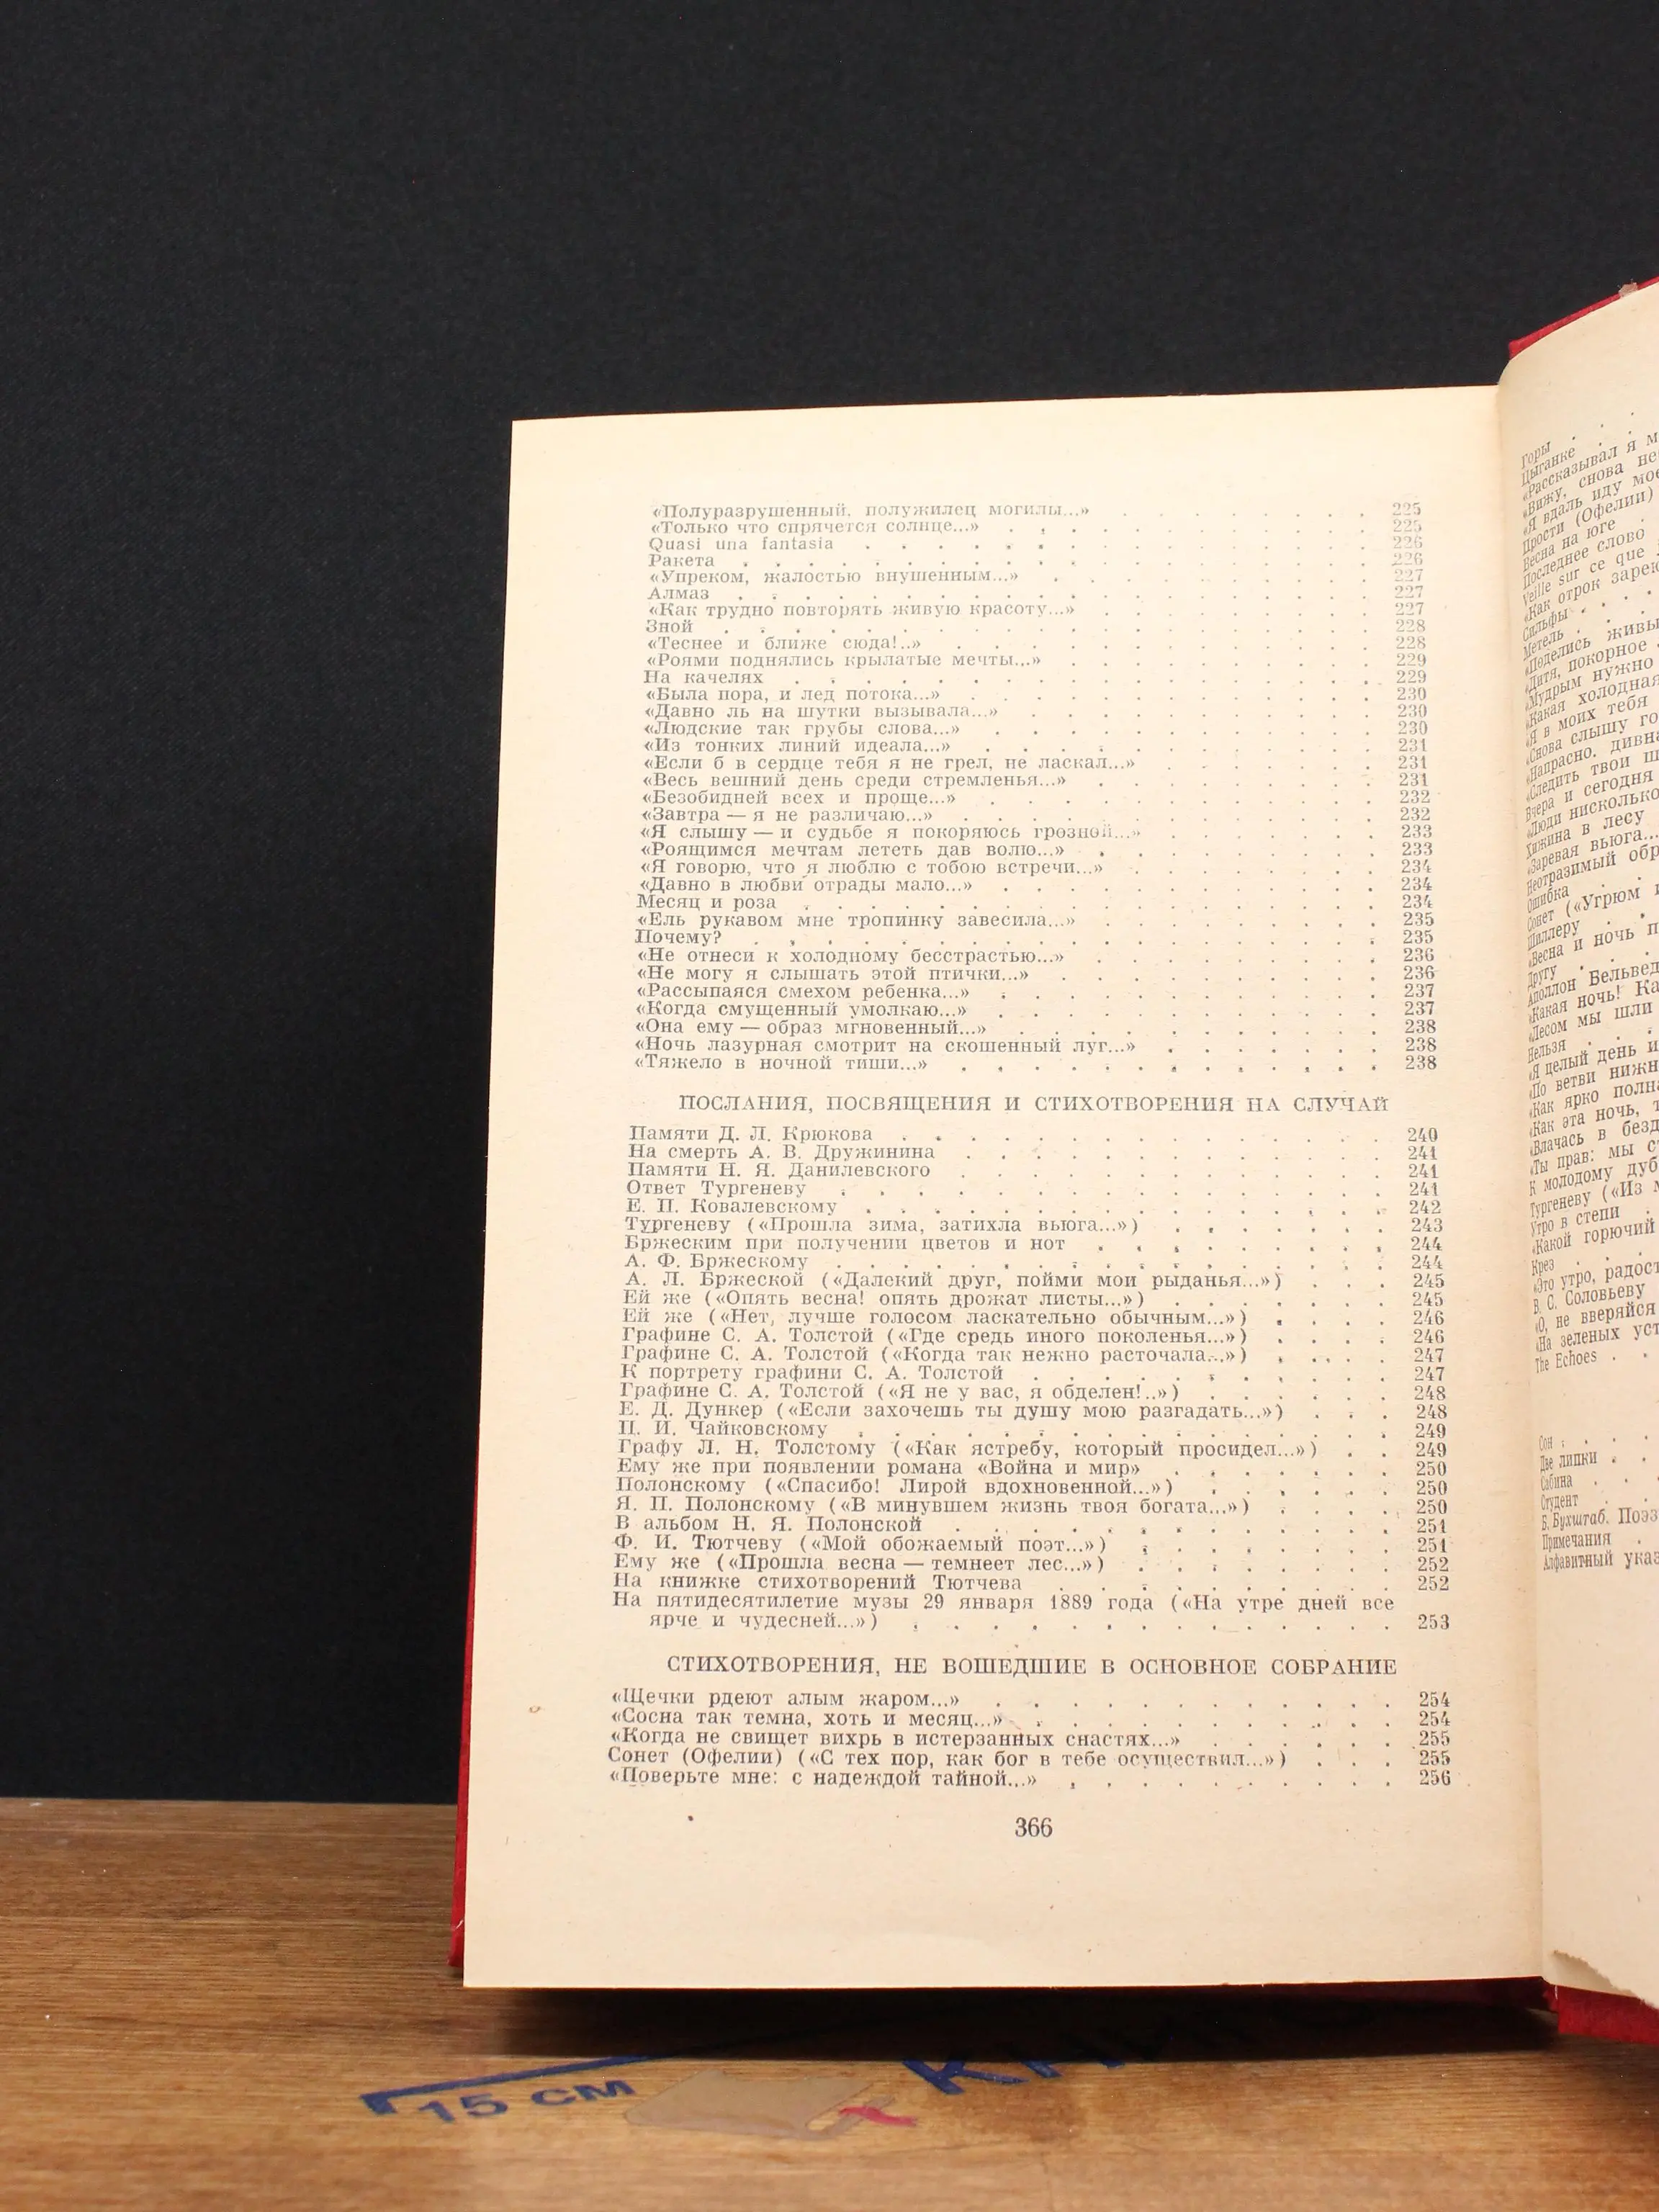 «Полуразрушенный, полужилец могилы...» 225
«Только что спрячется солнце...» 225
Quasi una fantasia 226
Ракета 226
«Упреком, жалостью внушенным...» 227
Алмаз 227
«Как трудно повторять живую красоту...» 227
Зной 228
«Теснее и ближе сюда!..» 228
«Роями поднялись крылатые мечты...» 229
На качелях 229
«Была пора, и лед потока...» 230
«Давно ль на шутки вызывала...» 230
«Людские так грубы слова...» 230
«Из тонких линий идеала...» 231
«Если б в сердце тебя я не грел, не ласкал...» 231
«Весь вешний день среди стремленья...» 231
«Безобидней всех и проще...» 232
«Завтра — я не различаю...» 232
«Я слышу — и судьбе я покоряюсь грозной...» 233
«Роящимся мечтам лететь дав волю...» 233
«Я говорю, что я люблю с тобою встречи...» 234
«Давно в любви отрады мало...» 234
Месяц и роза 234
«Ель рукавом мне тропинку завесила...» 235
Почему? 235
«Не отнеси к холодному бесстрастью...» 236
«Не могу я слышать этой птички...» 236
«Рассыпаяся смехом ребенка...» 237
«Когда смущенный умолкаю...» 237
«Она ему — образ мгновенный...» 238
«Ночь лазурная смотрит на скошенный луг...» 238
«Тяжело в ночной тиши...» 238
ПОСЛАНИЯ, ПОСВЯЩЕНИЯ И СТИХОТВОРЕНИЯ НА СЛУЧАЙ
Памяти Д. Л. Крюкова 240
На смерть А. В. Дружинина 241
Памяти Н. Я. Данилевского 241
Ответ Тургеневу 241
Е. П. Ковалевскому 242
Тургеневу («Прошла зима, затихла вьюга...») 243
Бржеским при получении цветов и нот 244
А. Ф. Бржескому 244
А. Л. Бржеской («Далекий друг, пойми мои рыданья...») 245
Ей же («Опять весна! опять дрожат листы...») 245
Ей же («Нет, лучше голосом ласкательно обычным...») 246
Графине С. А. Толстой («Где средь иного поколенья...») 246
Графине С. А. Толстой («Когда так нежно расточала...») 247
К портрету графини С. А. Толстой 247
Графине С. А. Толстой («Я не у вас, я обделен!..») 248
Е. Д. Дункер («Если захочешь ты душу мою разгадать...») 248
П. И. Чайковскому 249
Графу Л. Н. Толстому («Как ястребу, который просидел...») 249
Ему же при появлении романа «Война и мир» 250
Полонскому («Спасибо! Лирой вдохновенной...») 250
Я. П. Полонскому («В минувшем жизнь твоя богата...») 250
В альбом Н. Я. Полонской 251
Ф. И. Тютчеву («Мой обожаемый поэт...») 251
Ему же («Прошла весна — темнеет лес...») 252
На книжке стихотворений Тютчева 252
На пятидесятилетие музы 29 января 1889 года («На утре дней все
ярче и чудесней...») 253
СТИХОТВОРЕНИЯ, НЕ ВОШЕДШИЕ В ОСНОВНОЕ СОБРАНИЕ
«Щечки рдеют алым жаром...» 254
«Сосна так темна, хоть и месяц...» 254
«Когда не свищет вихрь в истерзанных снастях...» 255
Сонет (Офелии) («С тех пор, как бог в тебе осуществил...») 255
«Поверьте мне: с надеждой тайной...» 256
366
Горы
Цыганке
«Рассказывал я
«Вижу, снова
«Я вдаль иду
Прости (Офелии)
Весна на юге
Последнее слово
Veille sur ce que
«Как отрок
Сильфы
Метель
«Поделись
«Дитя, покорное
«Мудрым нужно
«Какая холодная
«Я в моих тебя
«Снова слышу
«Напрасно,
«Следить твои
Вчера и сегодня
«Люди нисколько
Хижина в лесу
«Заревая вьюга...
Неотразимый
Ошибка
Сонет («Угрюм
Шиллеру
«Весна и ночь
Другу
Аполлон
«Какая ночь!
«Лесом мы шли
Нельзя
«Я целый день
«По ветви
«Как ярко
«Как эта ночь,
«Влачась в
«Ты прав: мы
К молодому
Тургеневу («Из
Утро в степи
«Какой горючий
Крез
«Это утро,
В. С. Соловьеву
«О, не вверяйся
«На зеленых
The Echoes
Сон
Две липки
Сабина
Студент
Б. Бухштаб.
Примечания
Алфавитный
15 см